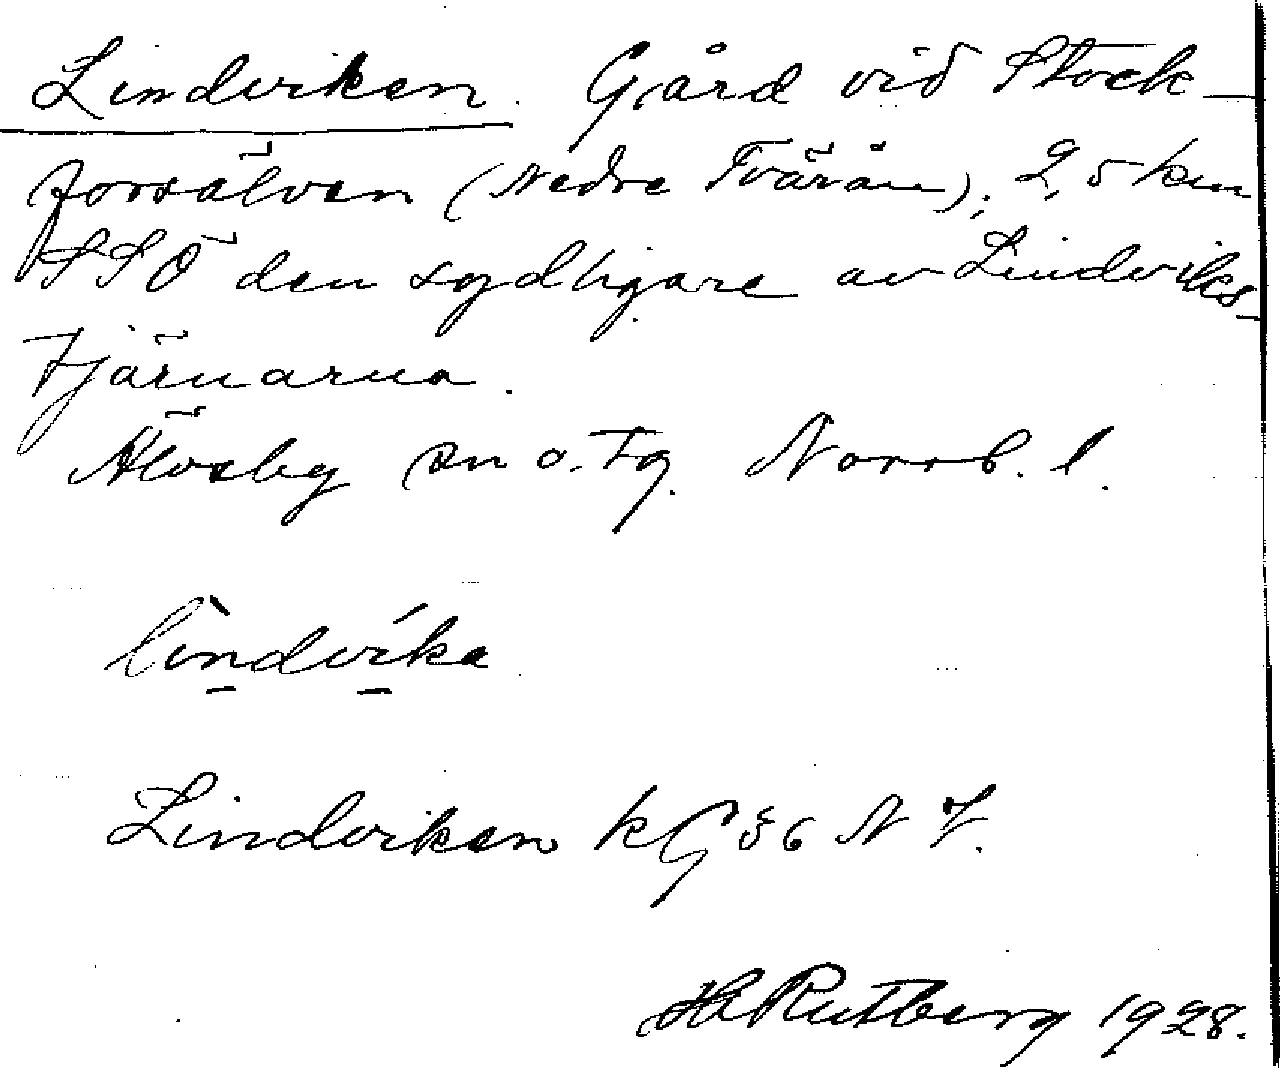 Lindviken. Gård vid Stock-
forsälven (Nedre Tvärån); 2,5 km
SSÖ den sydligare av Lindviks-
tjärnarna.
Älvsby sn o. tg. Norrb. l.
lìndvíka
Lindviken kG 56 NV.
H Rutberg 1928.